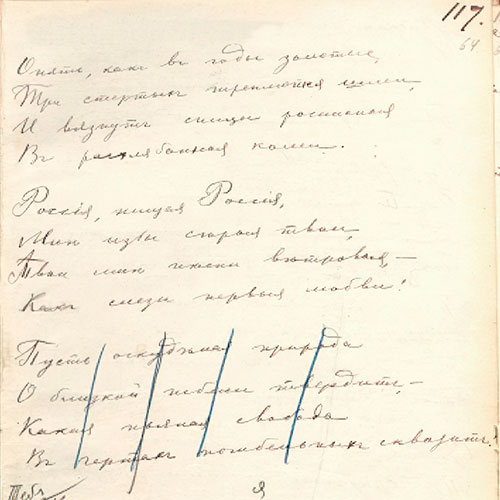 117.
64
Опять, какъ въ годы золотые,
Три стертыхъ треплются шлеи,
И вязнутъ спицы росписныя
Въ расхлябанныя колеи.
Россія, нищая Россія,
Мнѣ избы сѣрыя твои,
Твои мнѣ пѣсни вѣтровыя, —
Какъ слезы первыя любви!
Пусть природа
О близкой гибели твердитъ, —
Какая пьяная свобода
Въ чертахъ погибельныхъ сквозитъ!
я